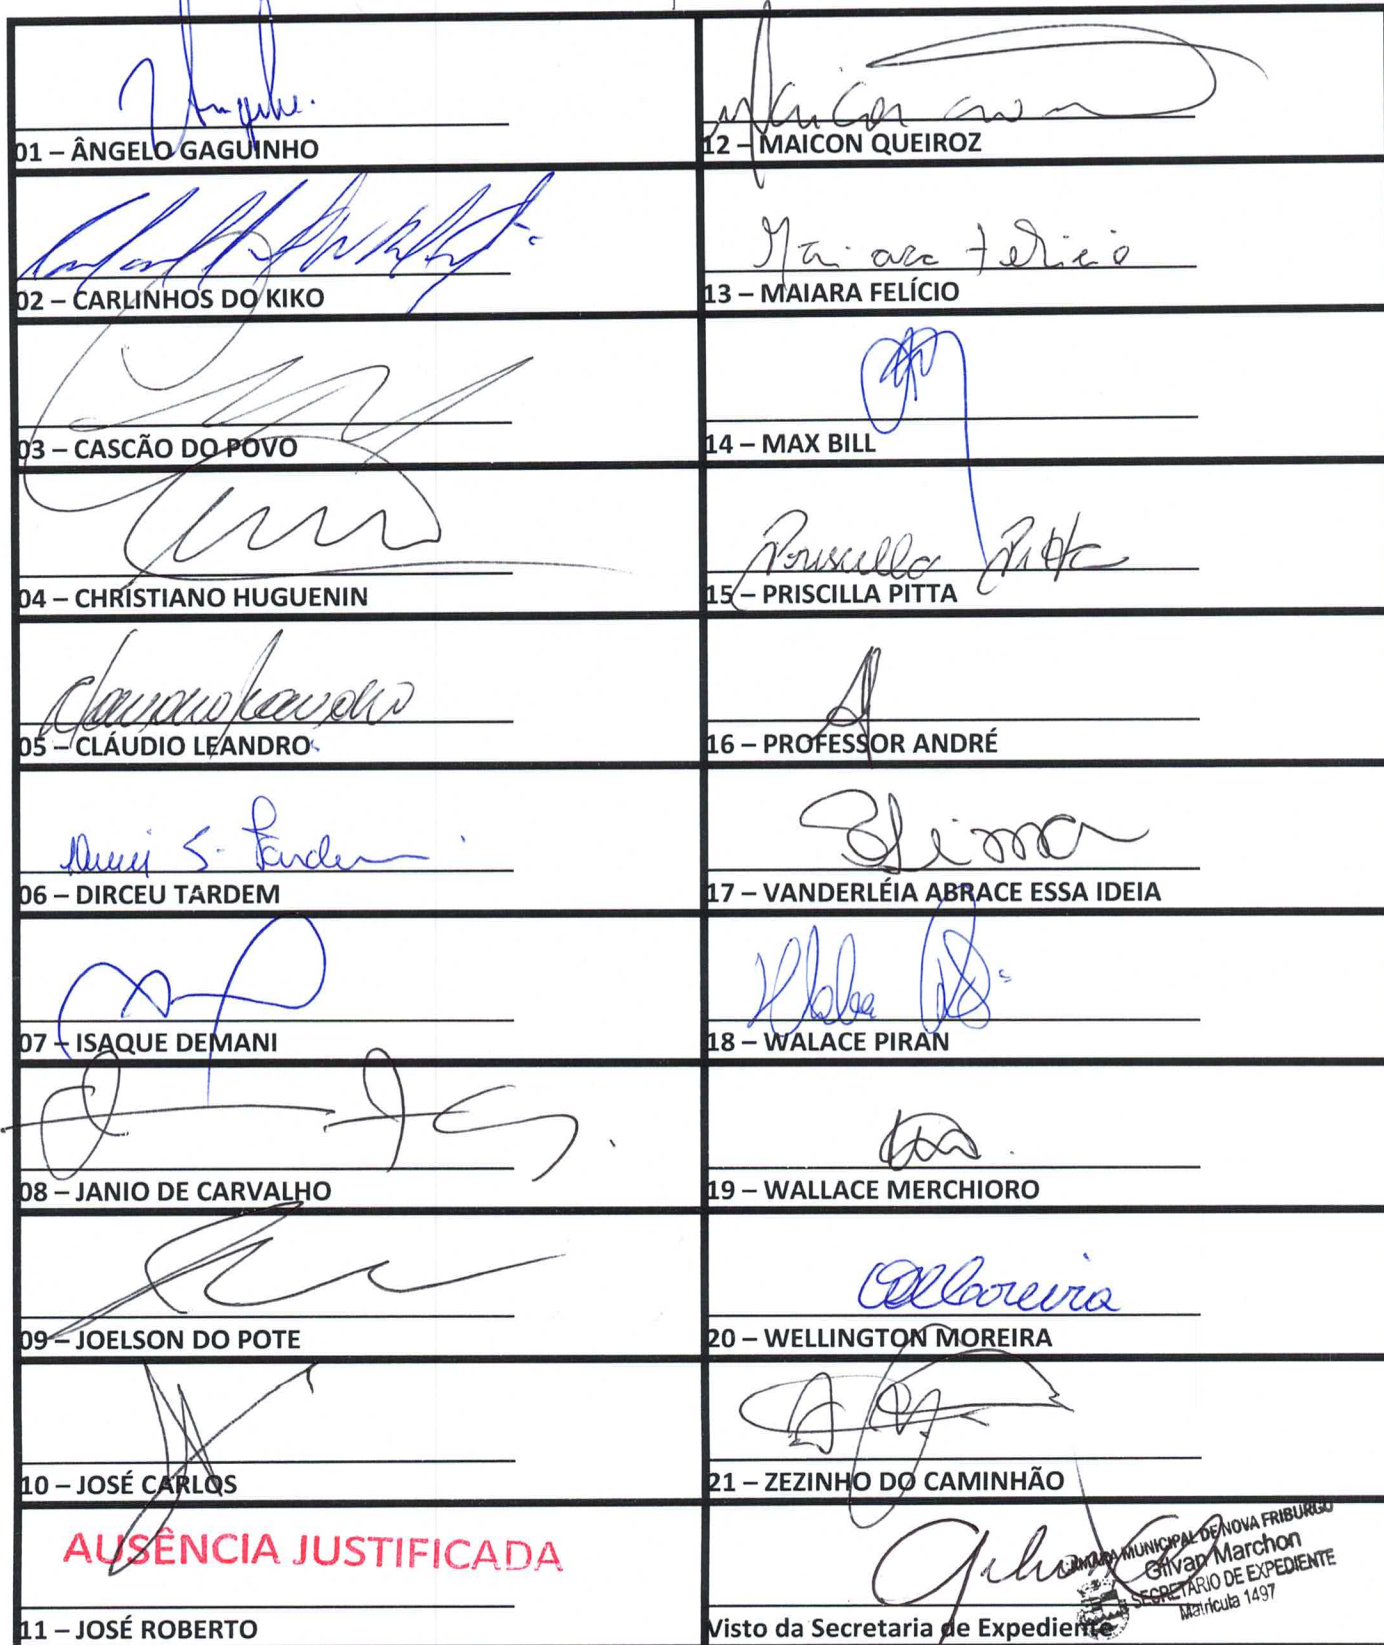 01 – ÂNGELO GAGUINHO
02 – CARLINHOS DO KIKO
03 – CASCÃO DO POVO
04 – CHRISTIANO HUGUENIN
05 – CLÁUDIO LEANDRO
06 – DIRCEU TARDEM
07 – ISAQUE DEMANI
08 – JANIO DE CARVALHO
09 – JOELSON DO POTE
10 – JOSÉ CARLOS
AUSÊNCIA JUSTIFICADA
11 – JOSÉ ROBERTO
12 – MAICON QUEIROZ
Maiara Felicio
13 – MAIARA FELÍCIO
14 – MAX BILL
Priscilla Pitta
15 – PRISCILLA PITTA
16 – PROFESSOR ANDRÉ
17 – VANDERLÉIA ABRACE ESSA IDEIA
18 – WALACE PIRAN
19 – WALLACE MERCHIORO
20 – WELLINGTON MOREIRA
21 – ZEZINHO DO CAMINHÃO
CÂMARA MUNICIPAL DE NOVA FRIBURGO
Gilvan Marchon
SECRETÁRIO DE EXPEDIENTE
Matrícula 1497
Visto da Secretaria de Expediente